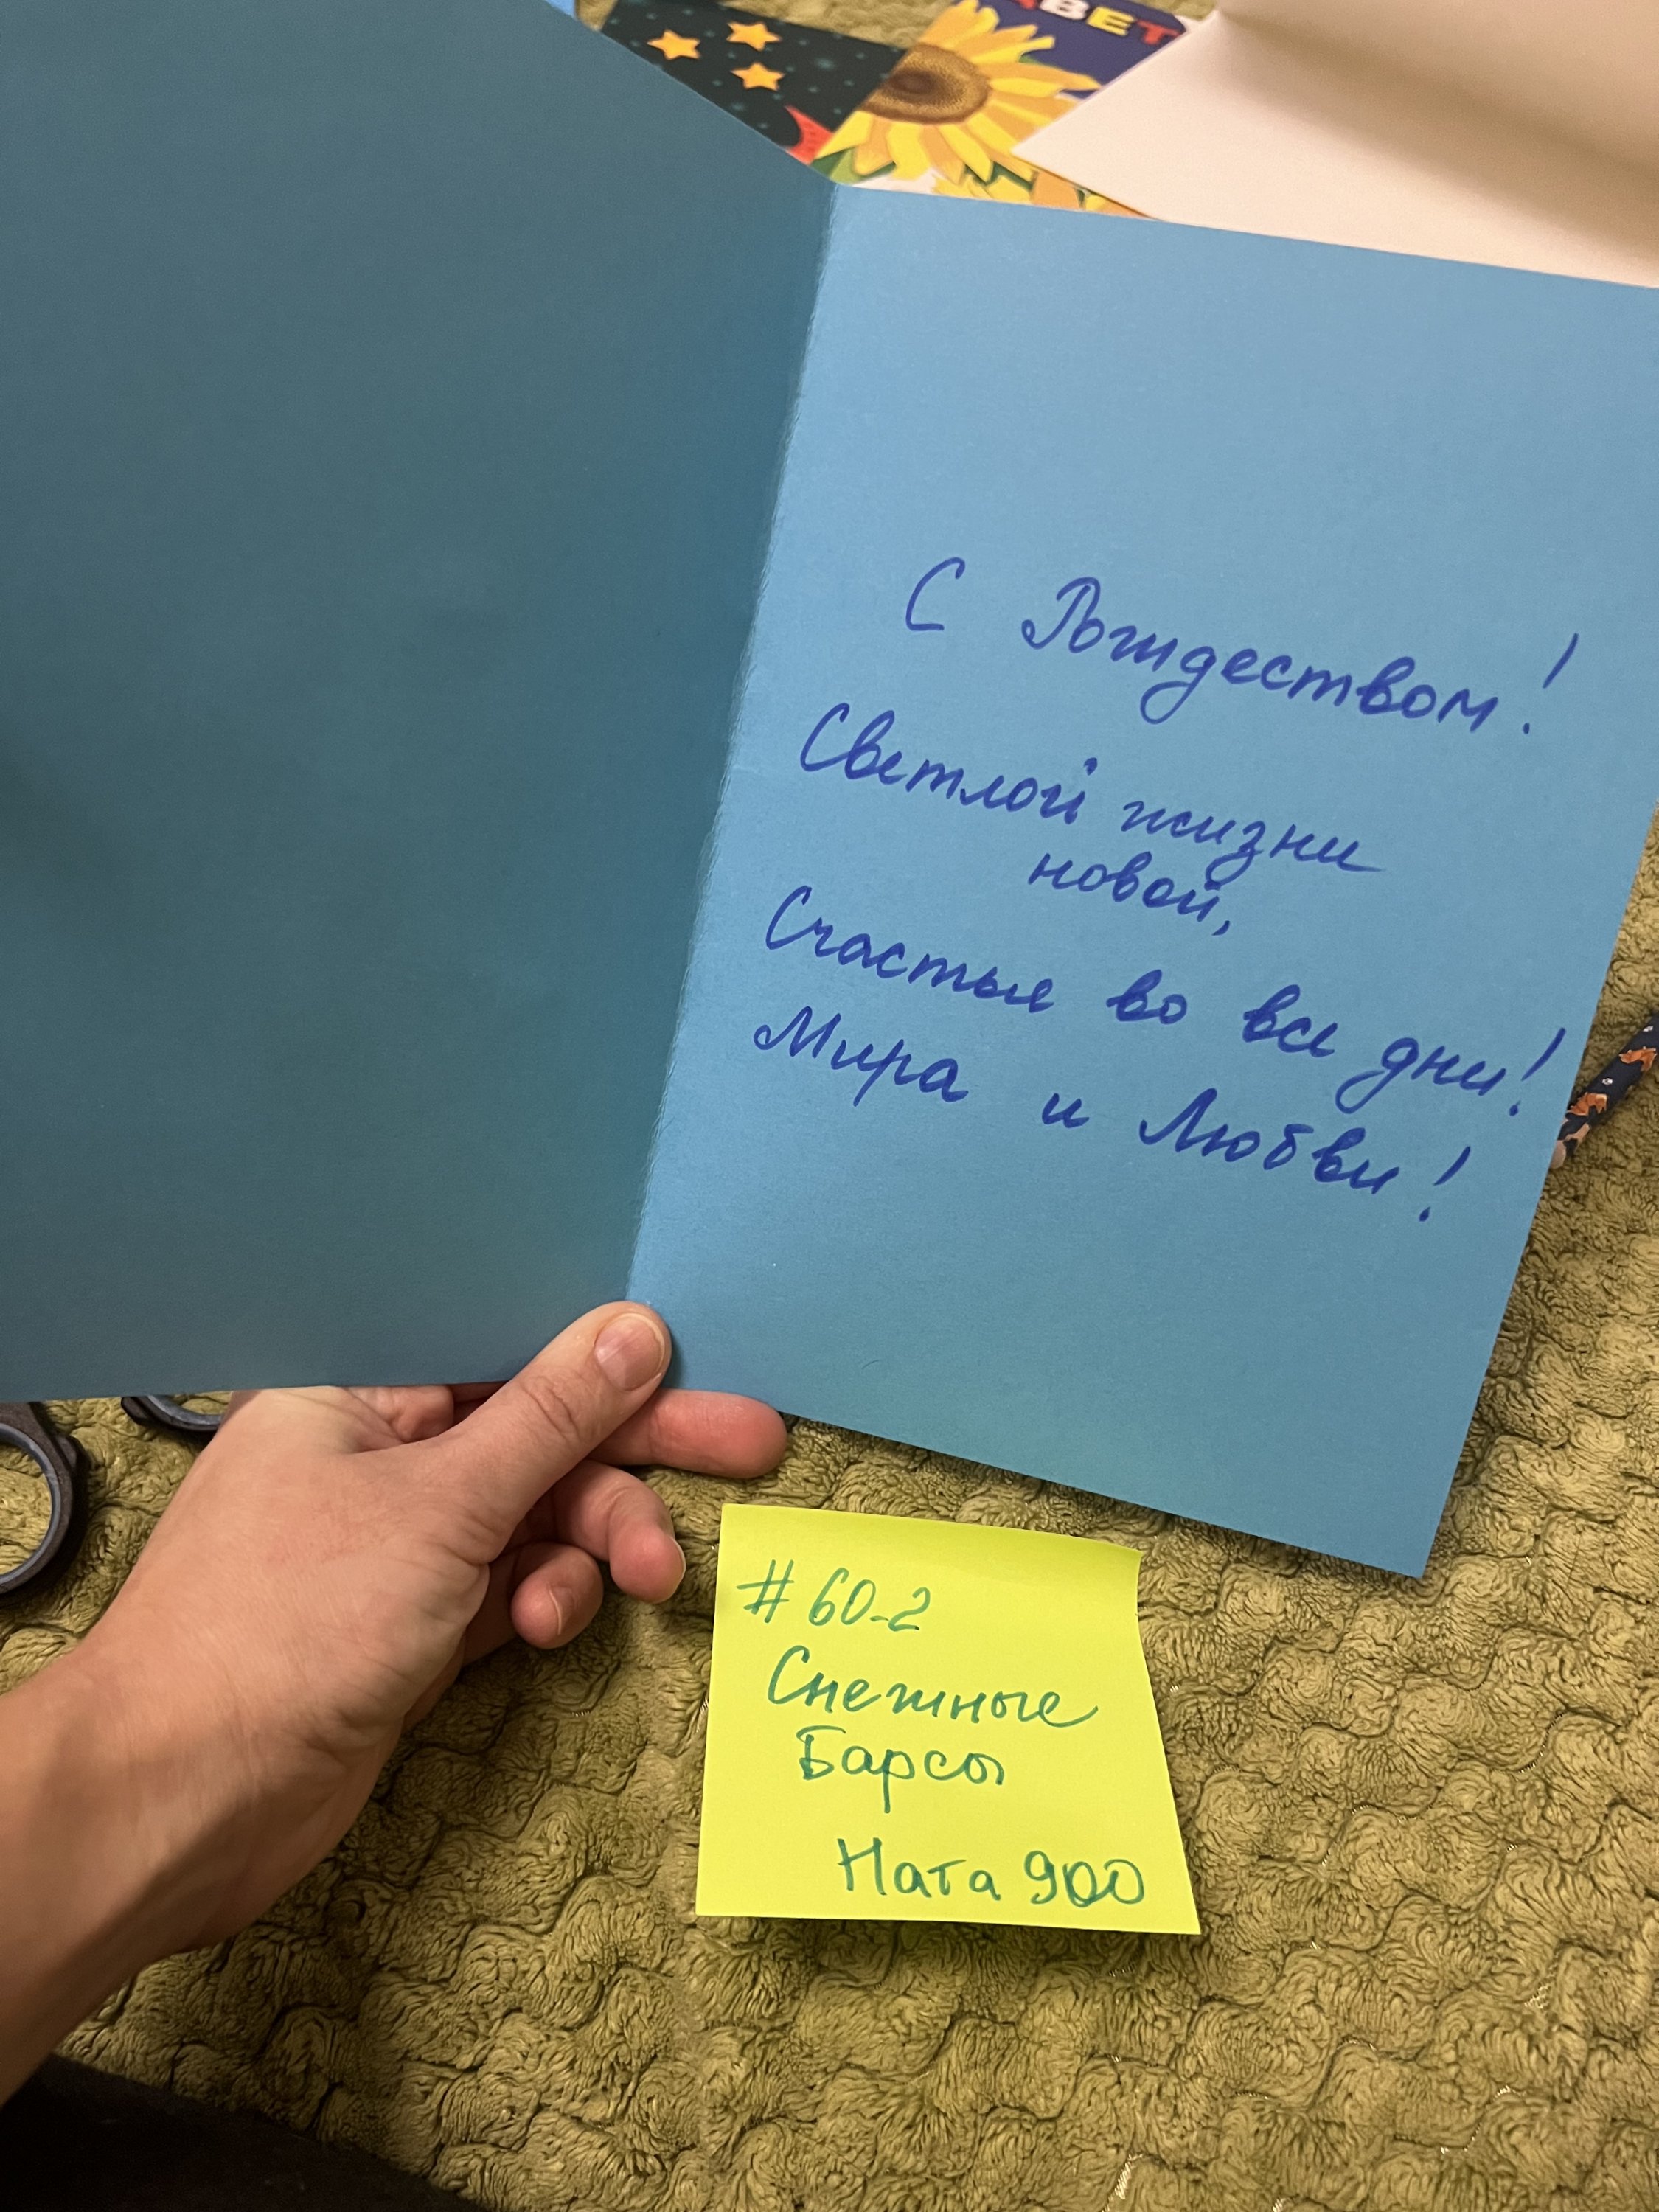 АВЕТ
С Рождеством!
Светлой жизни
новой,
Счастья во все дни!
Мира и Любви!
#60-2
Снежные
Барсы
Ната 900